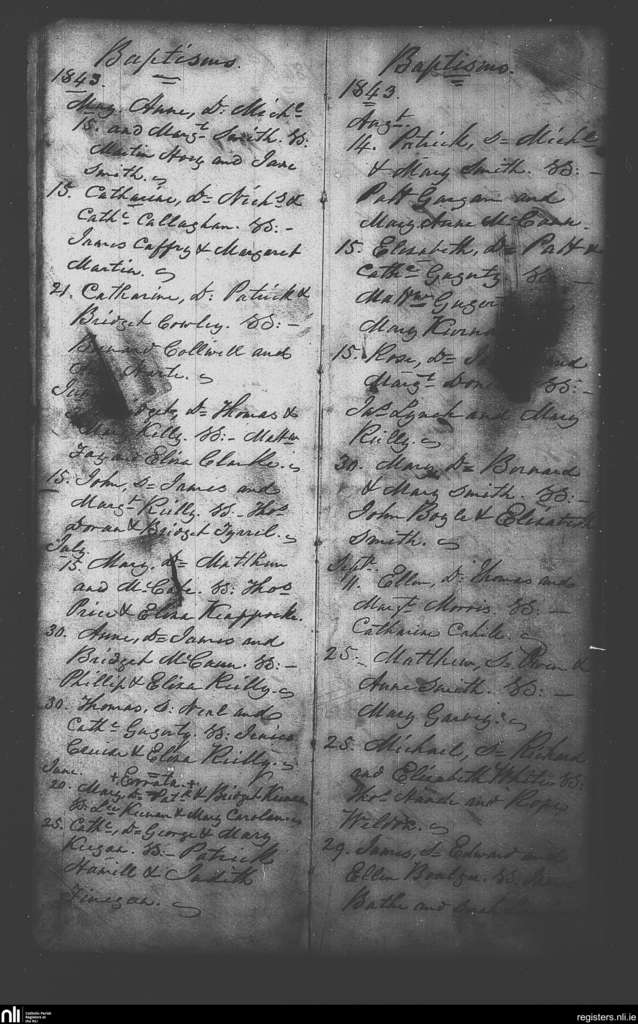 Baptisms.
1843.
May. Anne, D= Michl
15. and Margt Smith. SS:
Martin Hoey and Jane
Smith.
15. Catharine, D= Nichs &
Cathe Callaghan. SS:-
James Caffry & Margaret
Martin.
21. Catharine, D: Patrick &
Bridget Cowley. SS:-
Bernard Colliwell and
D= Thomas &
Kelly. SS:- Mattw
Fay and Eliza Clarke.
15. John, S= James and
Margt Reilly. SS- Thos
Doran & Bridget Tyrrel.
July.
15. Mary, D= Matthew
and McCabe. SS: Thos
Price & Eliza Keappocke.
30. Anne, D= James and
Bridget McCann. SS:-
Phillip & Eliza Reilly.
30. Thomas, S: Neal and
Cathe Gagurty. SS:
& Eliza Reilly.
June. + Errata. +
20. Mary, D= Patk & Bridget Kiernan
SS: Kiernan & Mary Carolan
25. Cathe, D= George & Mary
Keegan. SS- Patrick
Hamill & Judith
Finegan.
Baptisms.
1843.
Augt.
14. Patrick, S= Michl
& Mary Smith. SS:-
Patt Gargan and
Mary Anne McCann.
15. Elisabeth, D= Patt &
Cathe Gagurty. SS:-
Mattw
Mary
15. Rose, D= and
Margt SS:-
Jas Lynch and Mary
Reilly.
30. Mary, D= Bernard
& Mary Smith. SS:-
John Bogle & Elisabeth
Smith.
Sept.
11. Ellen, D= Thomas and
Margt Morris. SS:-
Catharine Cahill.
25.- Matthew, S= Owen &
Anne Smith. SS:-
Mary Garvey.
25. Michael, S= Richard
and Elizabeth White. SS:
Thos and
29. James, S= Edward and
Ellen SS:
Bathe and
nli
Catholic Parish
Registers at
the NLI
registers.nli.ie